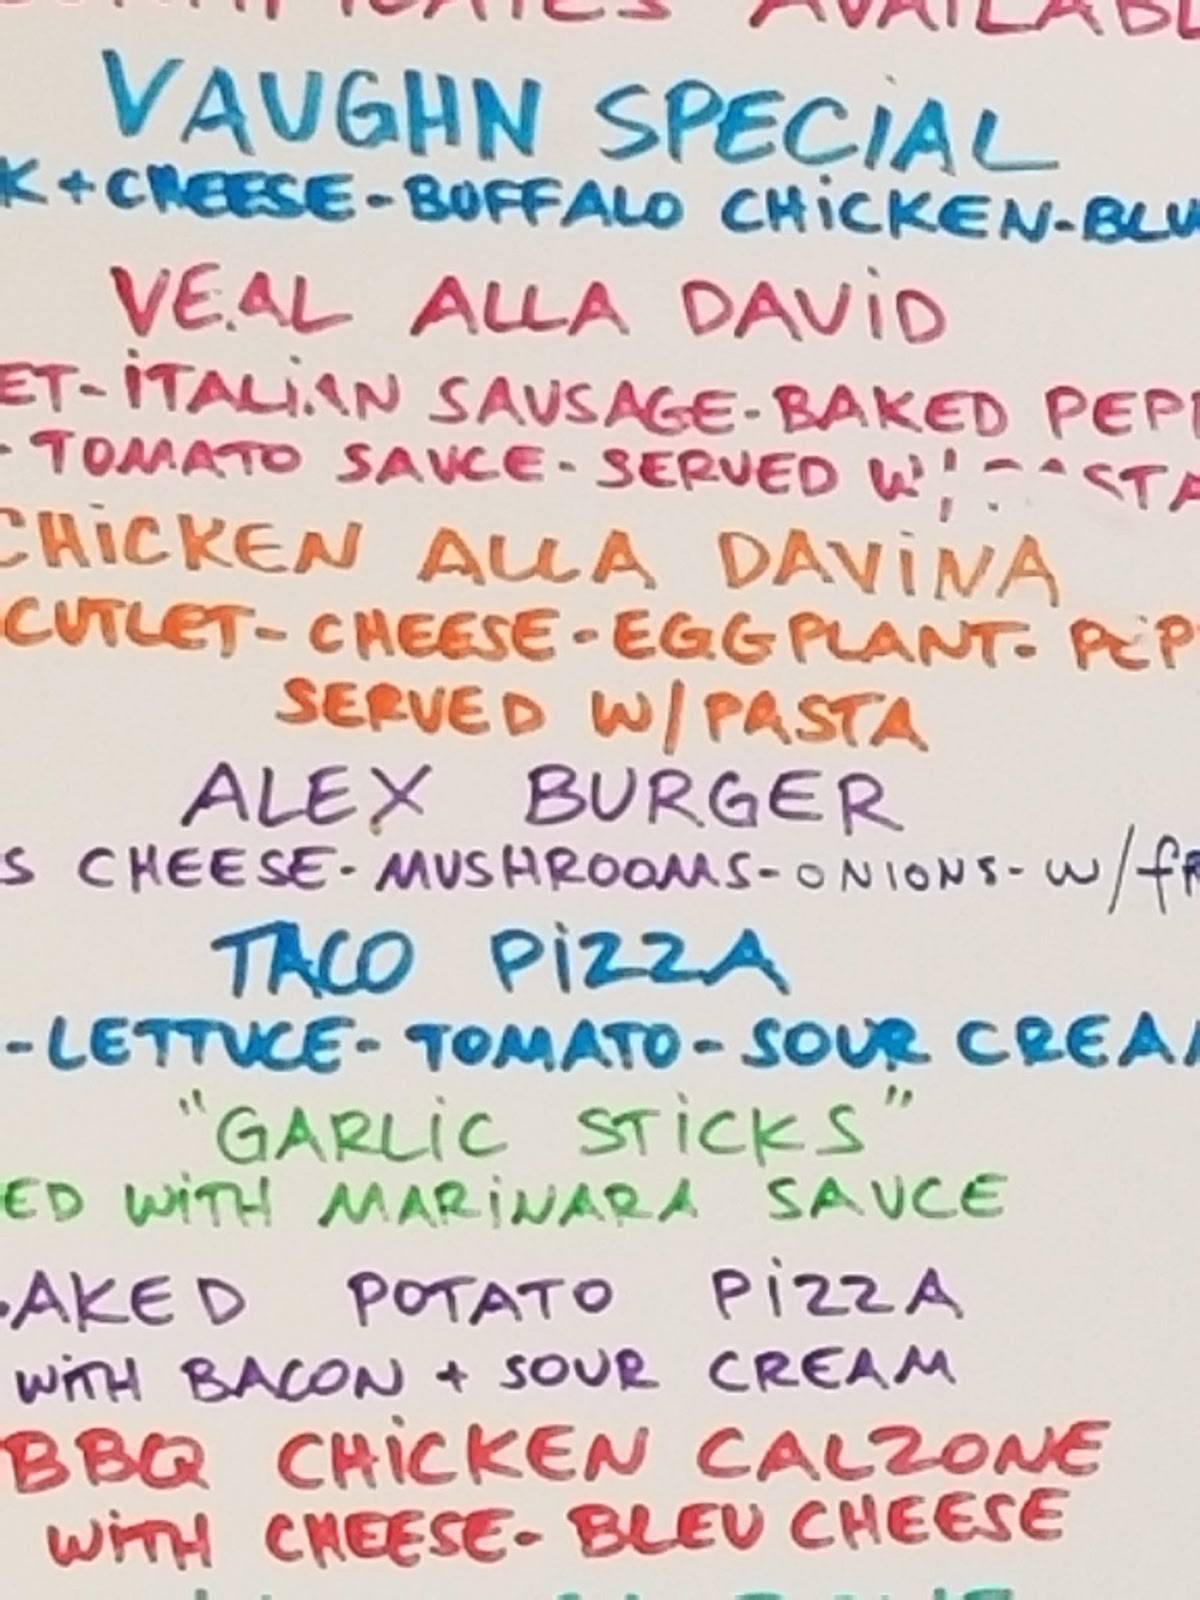 AVAILABL
VAUGHN SPECIAL
K + CHEESE - BUFFALO CHICKEN - BLU
VEAL ALLA DAVID
ET - ITALIAN SAUSAGE - BAKED PEPP
- TOMATO SAUCE - SERVED W/ PASTA
CHICKEN ALLA DAVINA
CUTLET - CHEESE - EGGPLANT - PEP
SERVED W/ PASTA
ALEX BURGER
S CHEESE - MUSHROOMS - ONIONS - W/ FR
TACO PIZZA
- LETTUCE - TOMATO - SOUR CREAM
"GARLIC STICKS"
ED WITH MARINARA SAUCE
BAKED POTATO PIZZA
WITH BACON + SOUR CREAM
BBQ CHICKEN CALZONE
WITH CHEESE - BLEU CHEESE